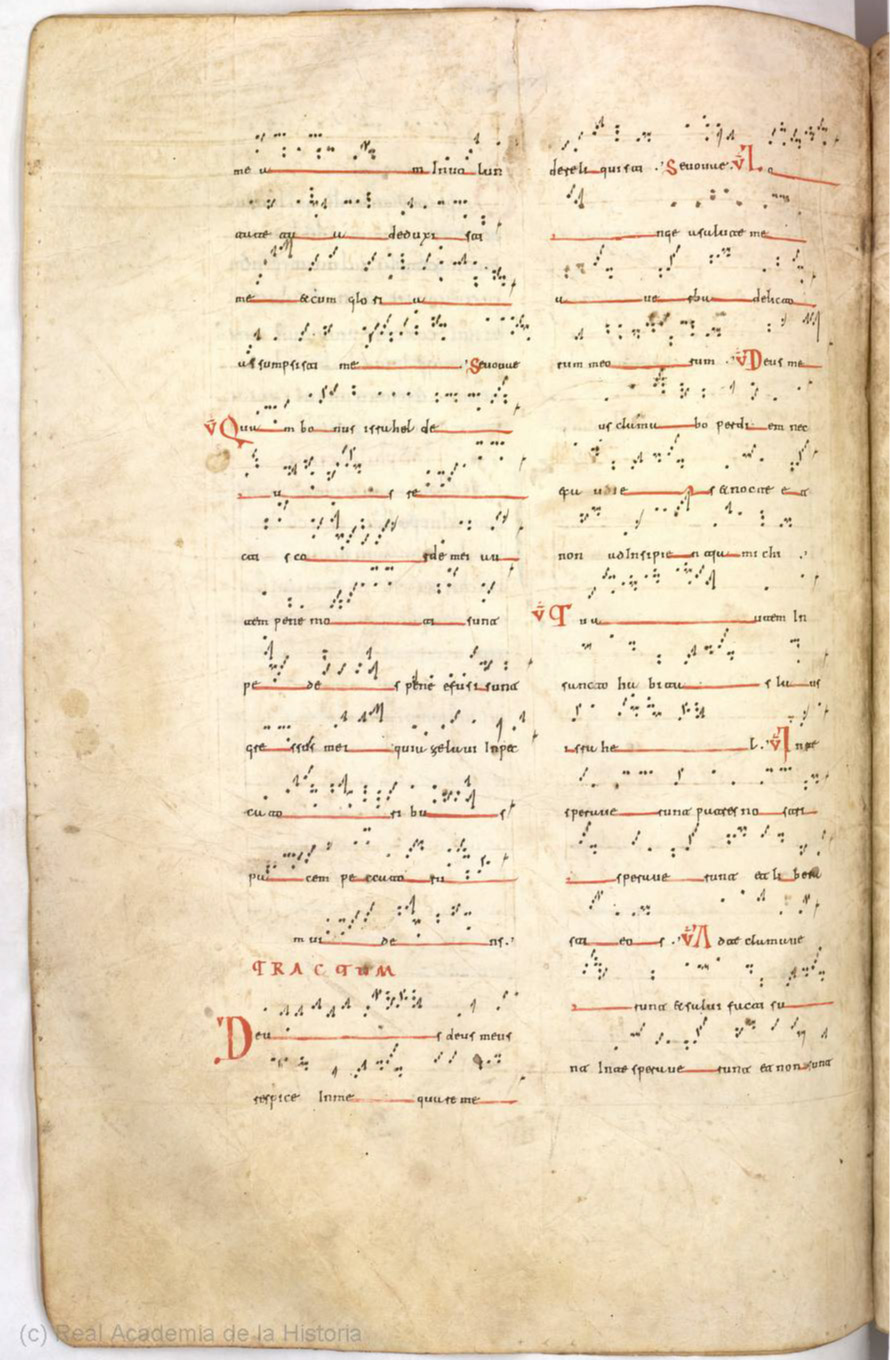 me a m In uo lun
tate tu a deduxi sti
me et cum glo ri a
assumpsisti me Seuouae
V Qua m bo nus israhel de
a s re
cti s co rde mei au
tem pene mo ti sunt
pe de s pene efusi sunt
gre ssus mei quia zelaui In pec
ca to ri bu s
pa cem pe ccato ru
m ui de ns.
TRACTUM
Deu s deus meus
respice In me quare me
dereli quisti . Seuouae V Lo
nge a salute me
a ue rba delicto
rum meo rum . V Deus me
us clama bo per di em nec
exau die s et nocte e t
non ad Insipie n tia mi chi .
V T u au tem In
sancto ha bitau s la us
israhe l . V In te
speraue runt patres no stri
speraue runt et li bera
sti eo s . V Ad te clamaue
runt et salui facti su
nt In te speraue runt et non sunt
(c) Real Academia de la Historia